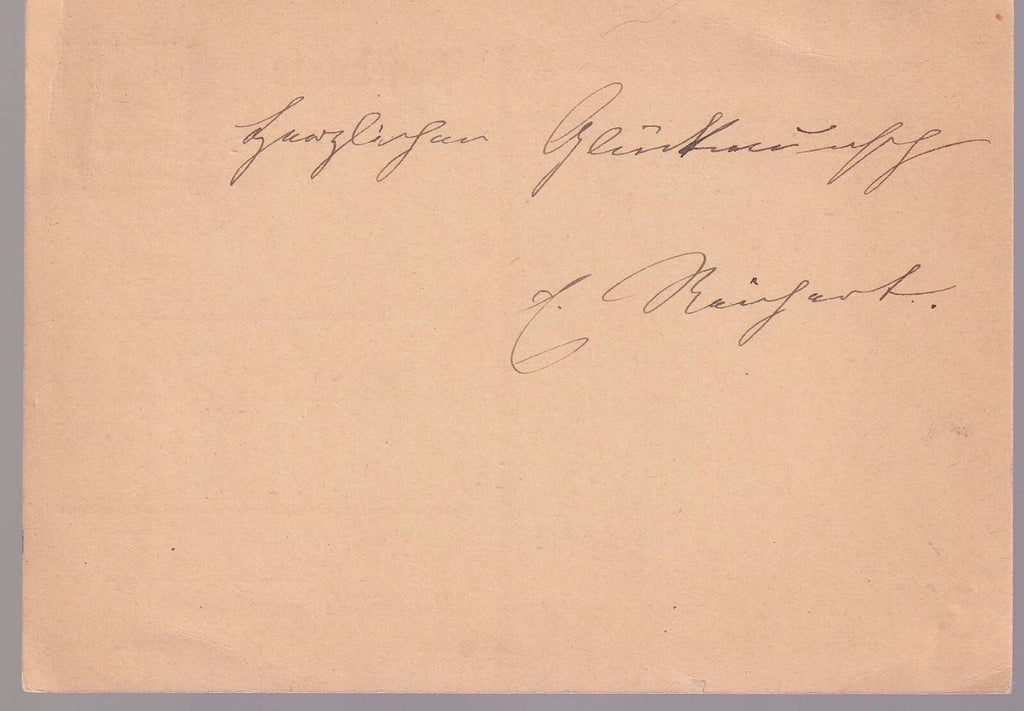 Herzlichen Glückwunsch
E. Reichert.